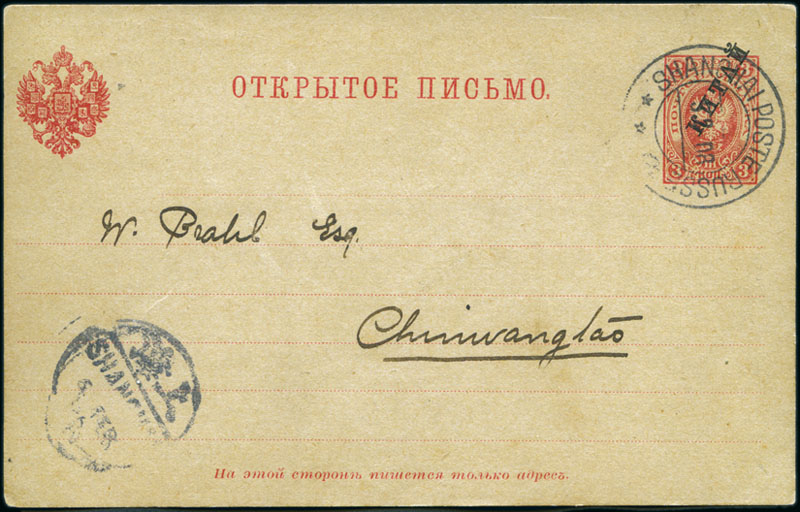 ОТКРЫТОЕ ПИСЬМО.
SHANGHAI POSTE RUSSE
КИТАЙ
3 3
W. Brahl Esq.
Chinwangtao
SHANGHAI
FEB
На этой сторонѣ пишется только адресъ.